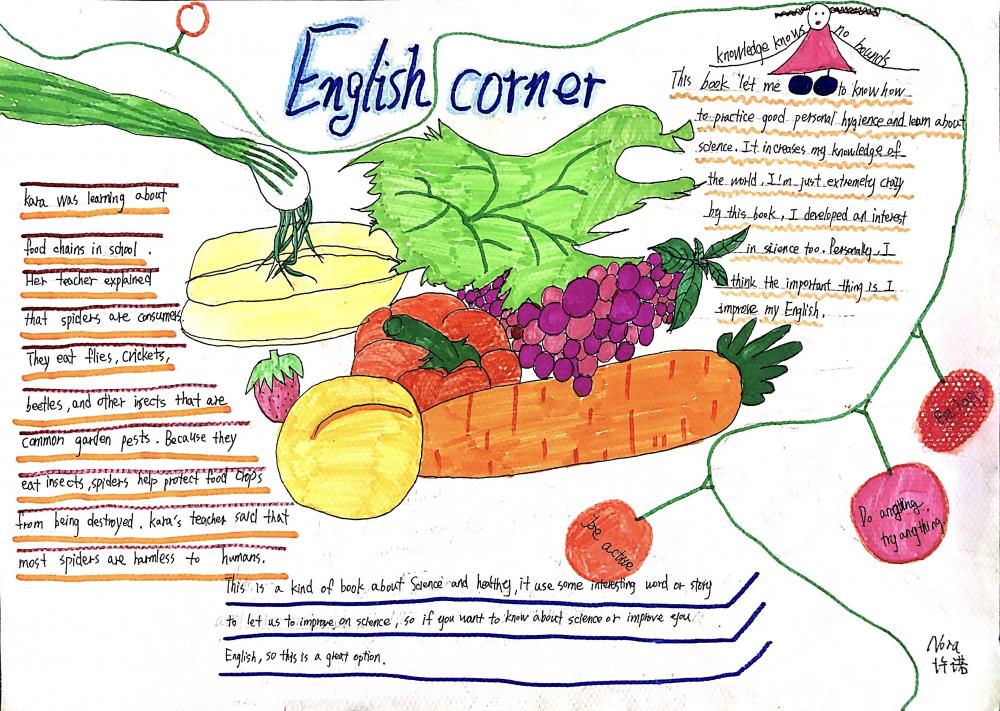 English corner
knowledge knows no bounds
This book let me to know how
to practice good personal hygience and learn about
science. It increases my knowledge of
the world, I'm just extremety crazy
by this book, I developed an interest
in science too. Personally, I
think the important thing is I
improve my English.
kara was learning about
food chains in school.
Her teacher explained
that spiders are consumers
They eat flies, crickets,
beetles, and other isects that are
common garden pests. Because they
eat insects, spiders help protect food crops
from being destroyed. kara's teacher said that
most spiders are harmless to humans.
Do anything,
try anything.
be active
This is a kind of book about Science and healthy, it use some interesting word or story
to let us to improve on science, so if you want to know about science or improve you
English, so this is a great option.
Nora
许诺